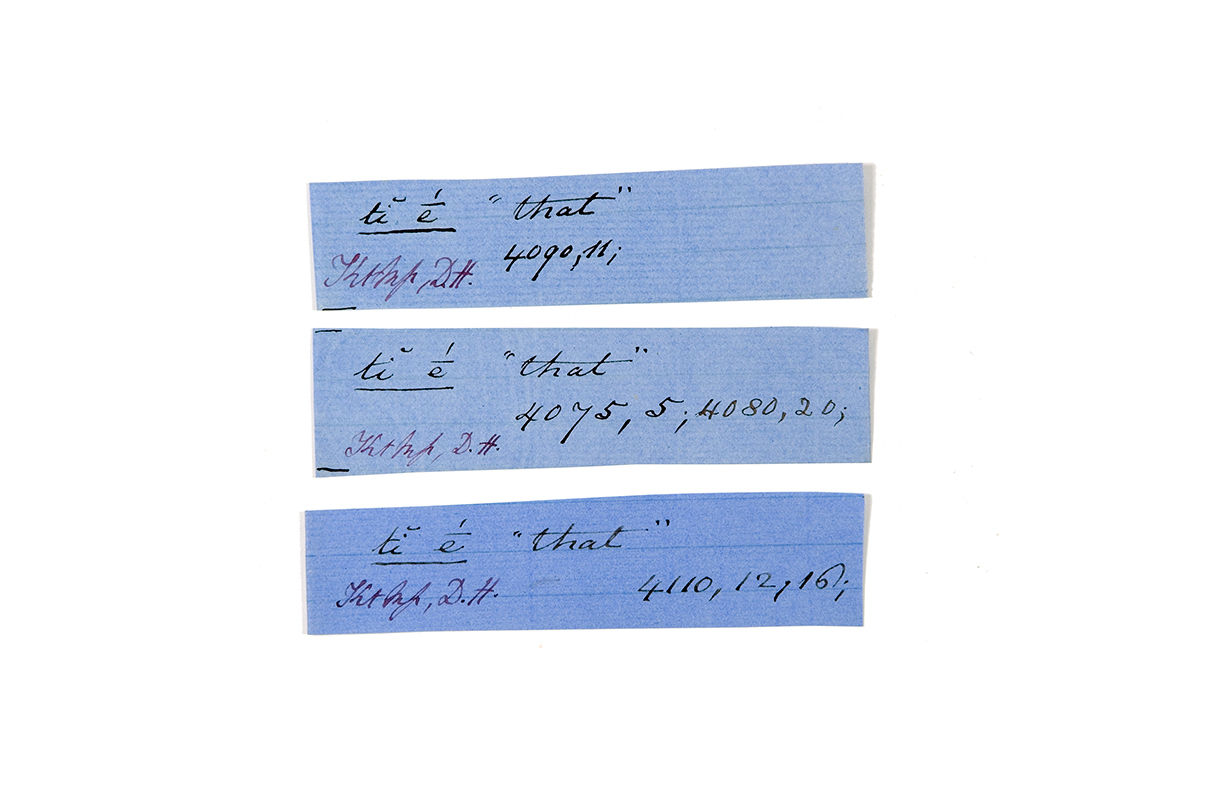 tĭ ḗ "that"
4090, 11;
D.H.
tĭ ḗ "that"
4075, 5; 4080, 20;
D.H.
tĭ ḗ "that"
4110, 12, 16;
D.H.